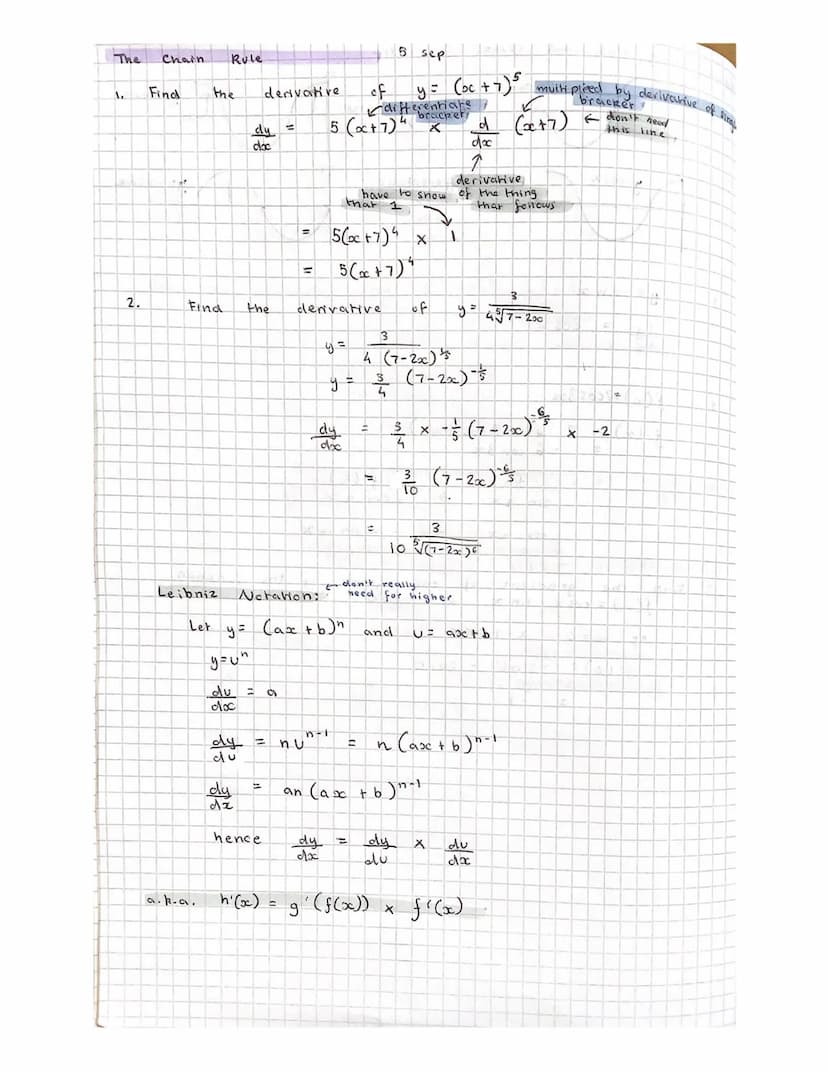 The Chain Rule 5 sep
1. Find the derivative of y = (x+7)^5 multiplied by derivative of
bracket
differentiate
bracket
dy/dx = 5(x+7)^4 × d/dx (x+7) ← don't need
this line
derivative
of the thing
that follows
have to show
that 1
= 5(x+7)^4 × 1
= 5(x+7)^4
2. Find the derivative of y = 3/(4 ⁵√(7-2x))
y = 3/(4(7-2x)^(1/5))
y = 3/4 (7-2x)^(-1/5)
dy/dx = 3/4 × -1/5 (7-2x)^(-6/5) × -2
= 3/10 (7-2x)^(-6/5)
= 3/(10 ⁵√(7-2x)^6)
Leibniz Notation: ← don't really
need for higher
Let y = (ax+b)^n and u = ax+b
y=u^n
du/dx = a
dy/du = nu^(n-1) = n(ax+b)^(n-1)
dy/dx = an(ax+b)^(n-1)
hence dy/dx = dy/du × du/dx
a.k.a. h'(x) = g'(f(x)) × f'(x)